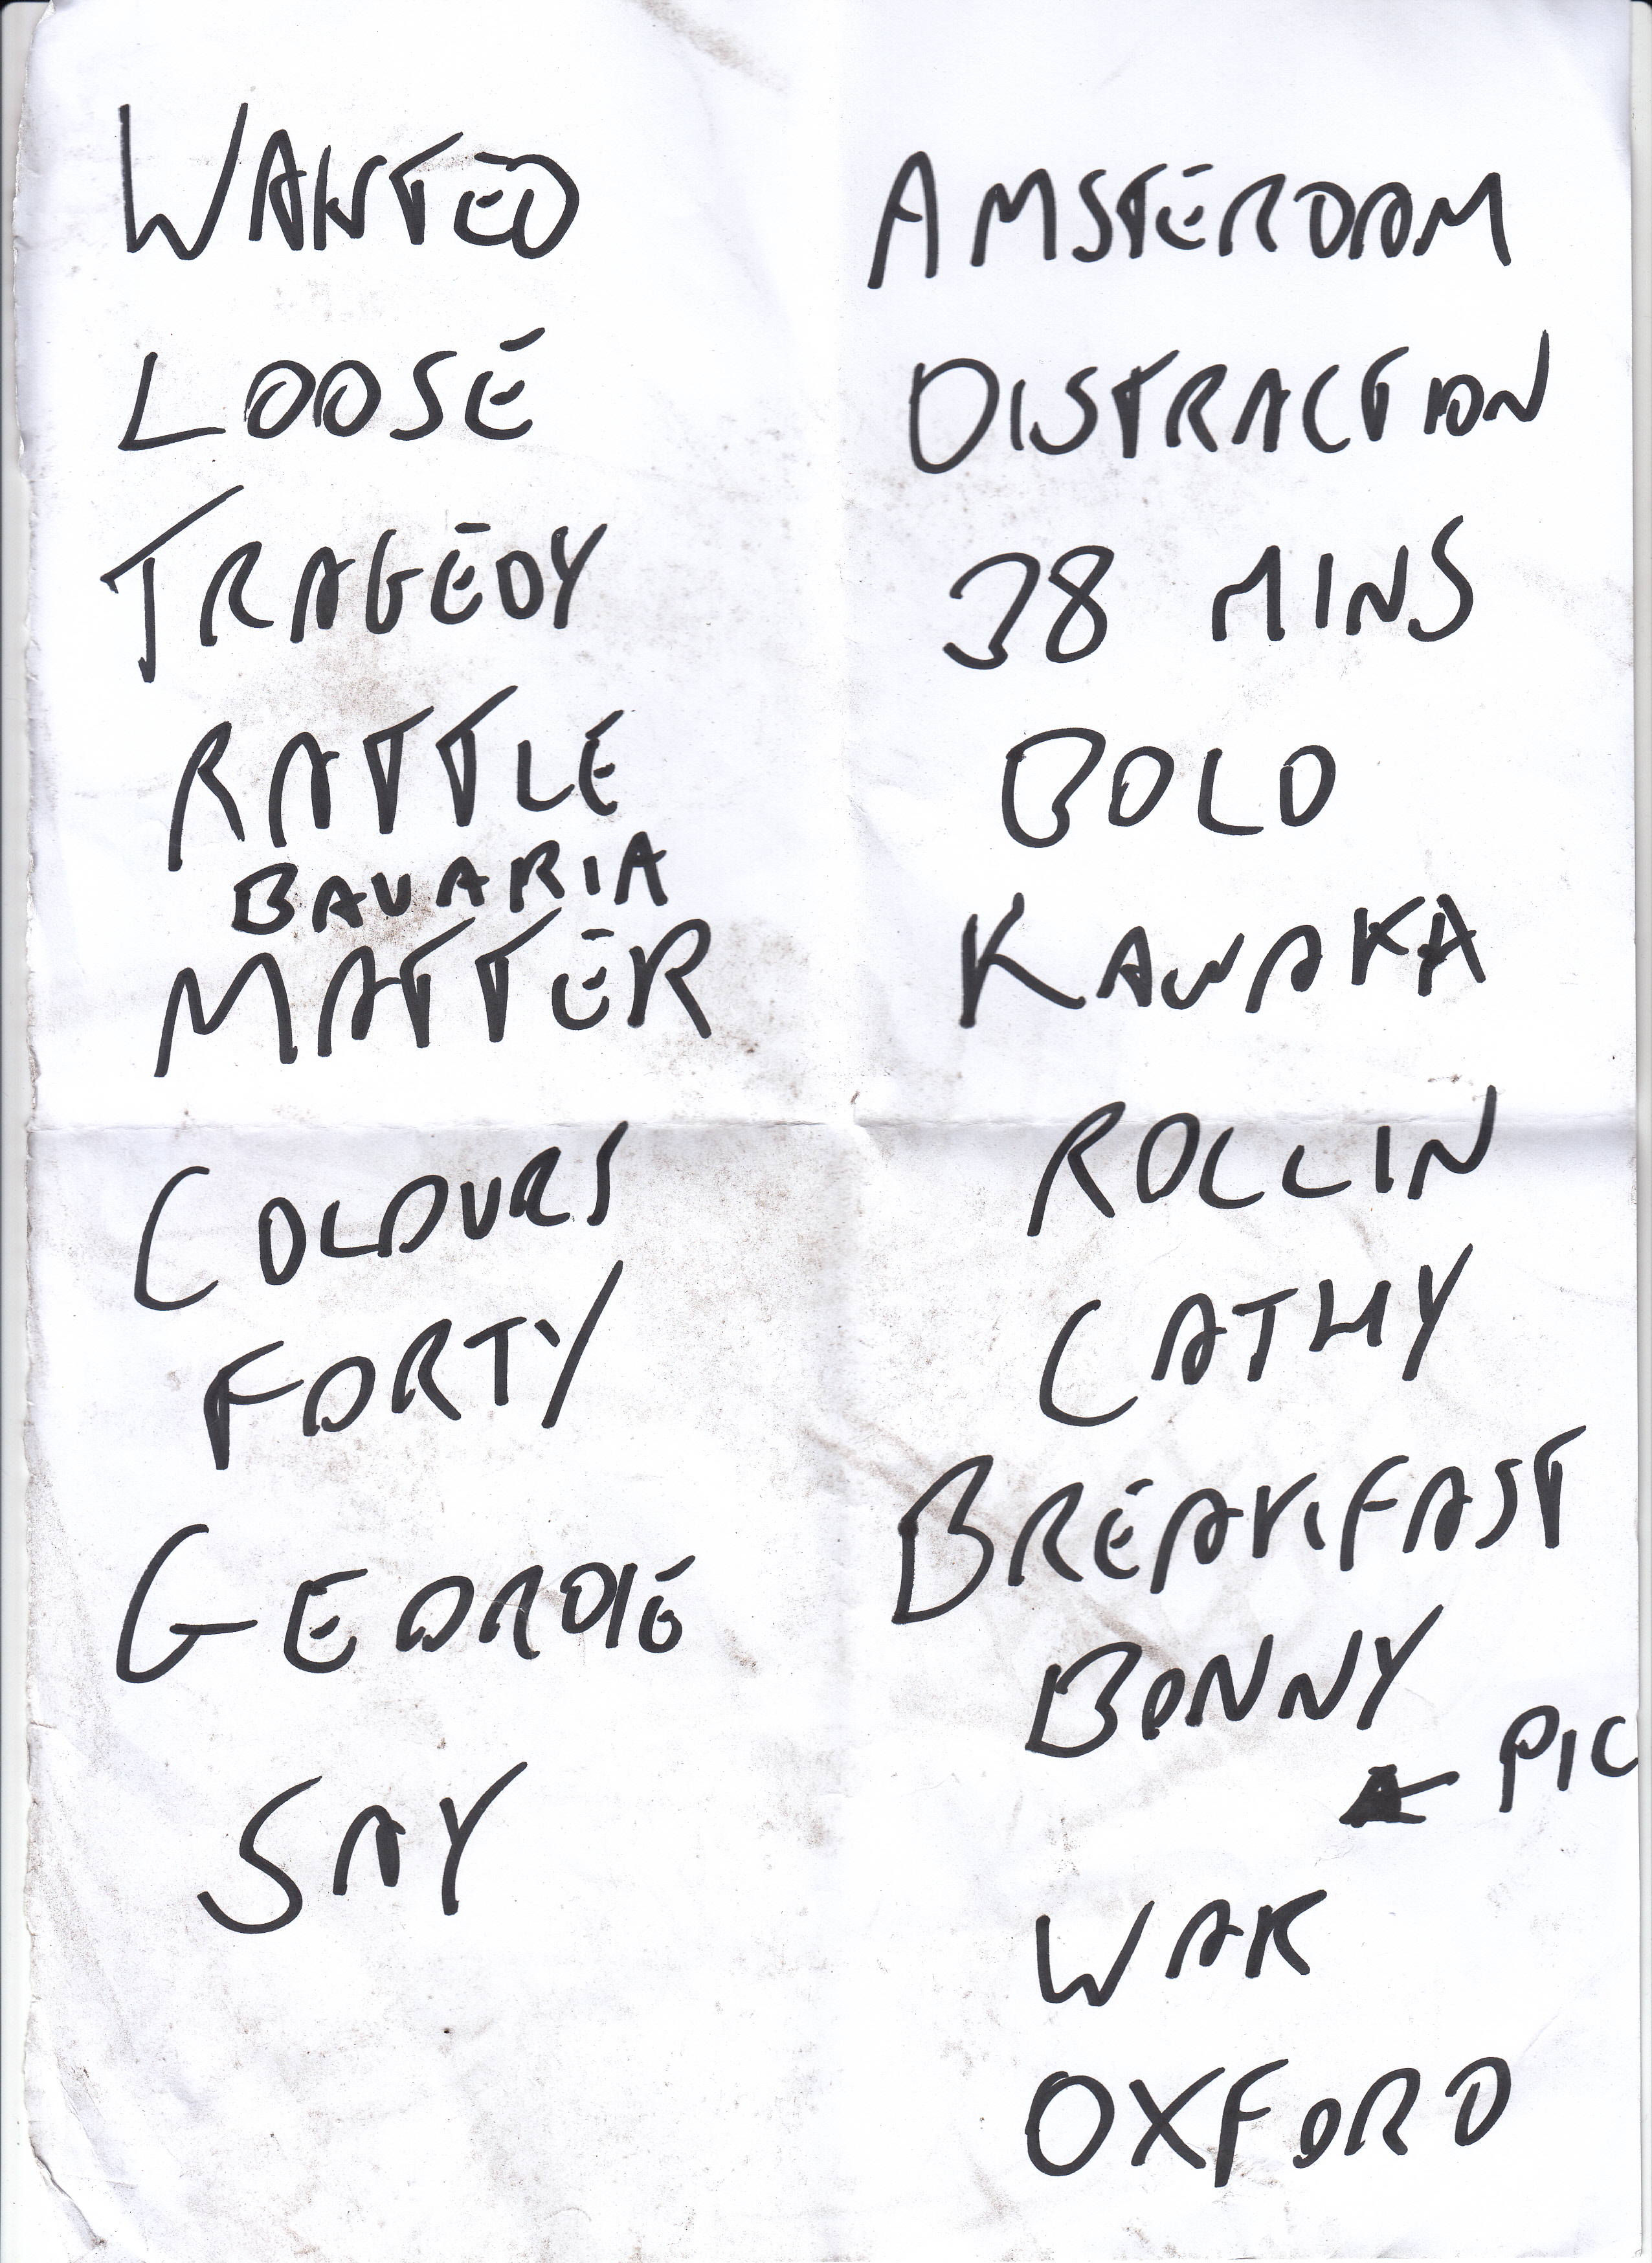 WANTED
LOOSE
TRAGEDY
RATTLE
BAVARIA
MATTER
COLOURS
FORTY
GEORDIE
SAY
AMSTERDAM
DISTRACTION
38 MINS
BOLD
KAWAKA
ROLLIN
CATHY
BREAKFAST
BONNY
← PIC
WAK
OXFORD